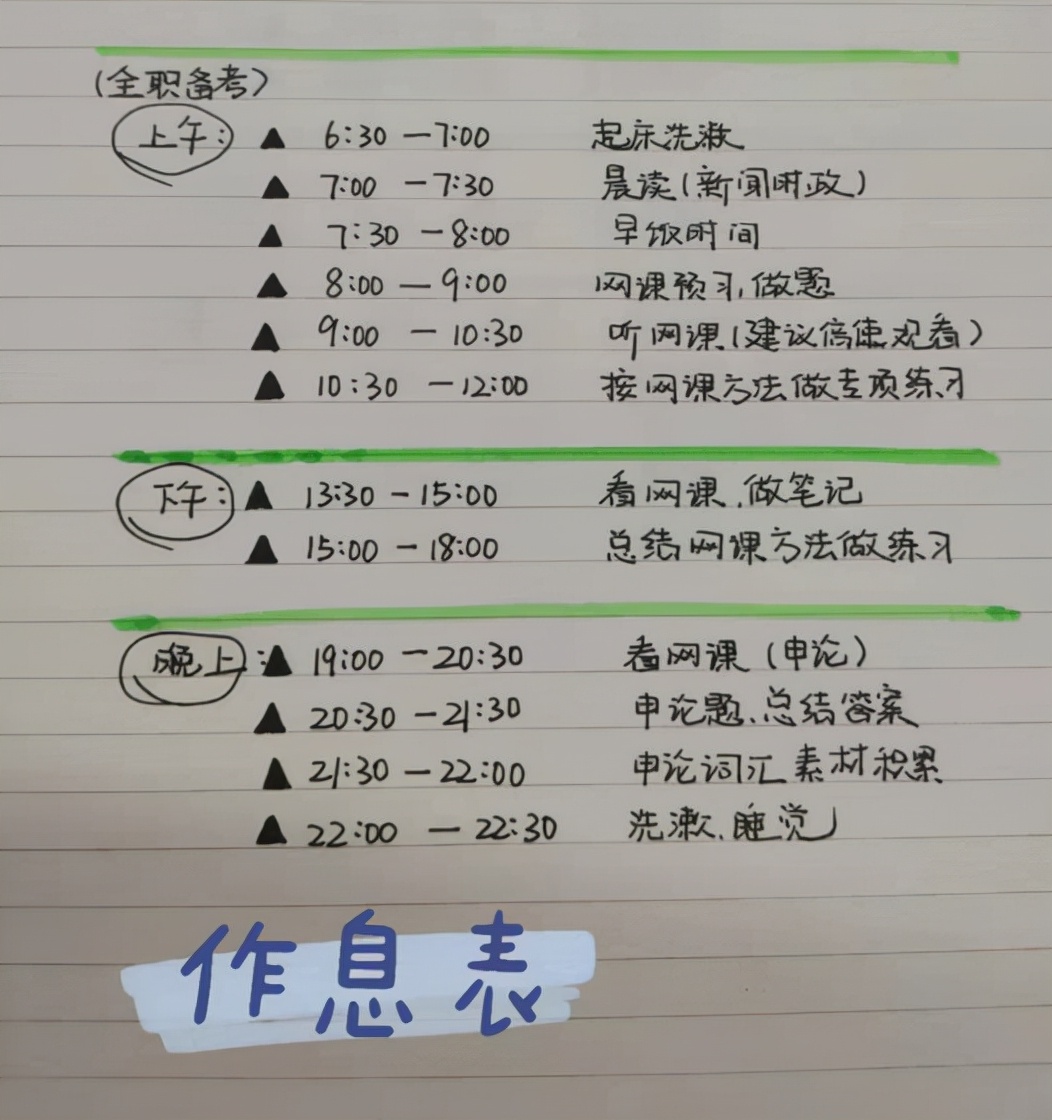 (全职备考)
上午: ▲ 6:30 — 7:00 起床洗漱
▲ 7:00 — 7:30 晨读(新闻时政)
▲ 7:30 — 8:00 早饭时间
▲ 8:00 — 9:00 网课预习,做题
▲ 9:00 — 10:30 听网课(建议倍速观看)
▲ 10:30 — 12:00 按网课方法做专项练习
下午: ▲ 13:30 — 15:00 看网课、做笔记
▲ 15:00 — 18:00 总结网课方法做练习
晚上: ▲ 19:00 — 20:30 看网课(申论)
▲ 20:30 — 21:30 申论题、总结答案
▲ 21:30 — 22:00 申论词汇素材积累
▲ 22:00 — 22:30 洗漱、睡觉
作息表